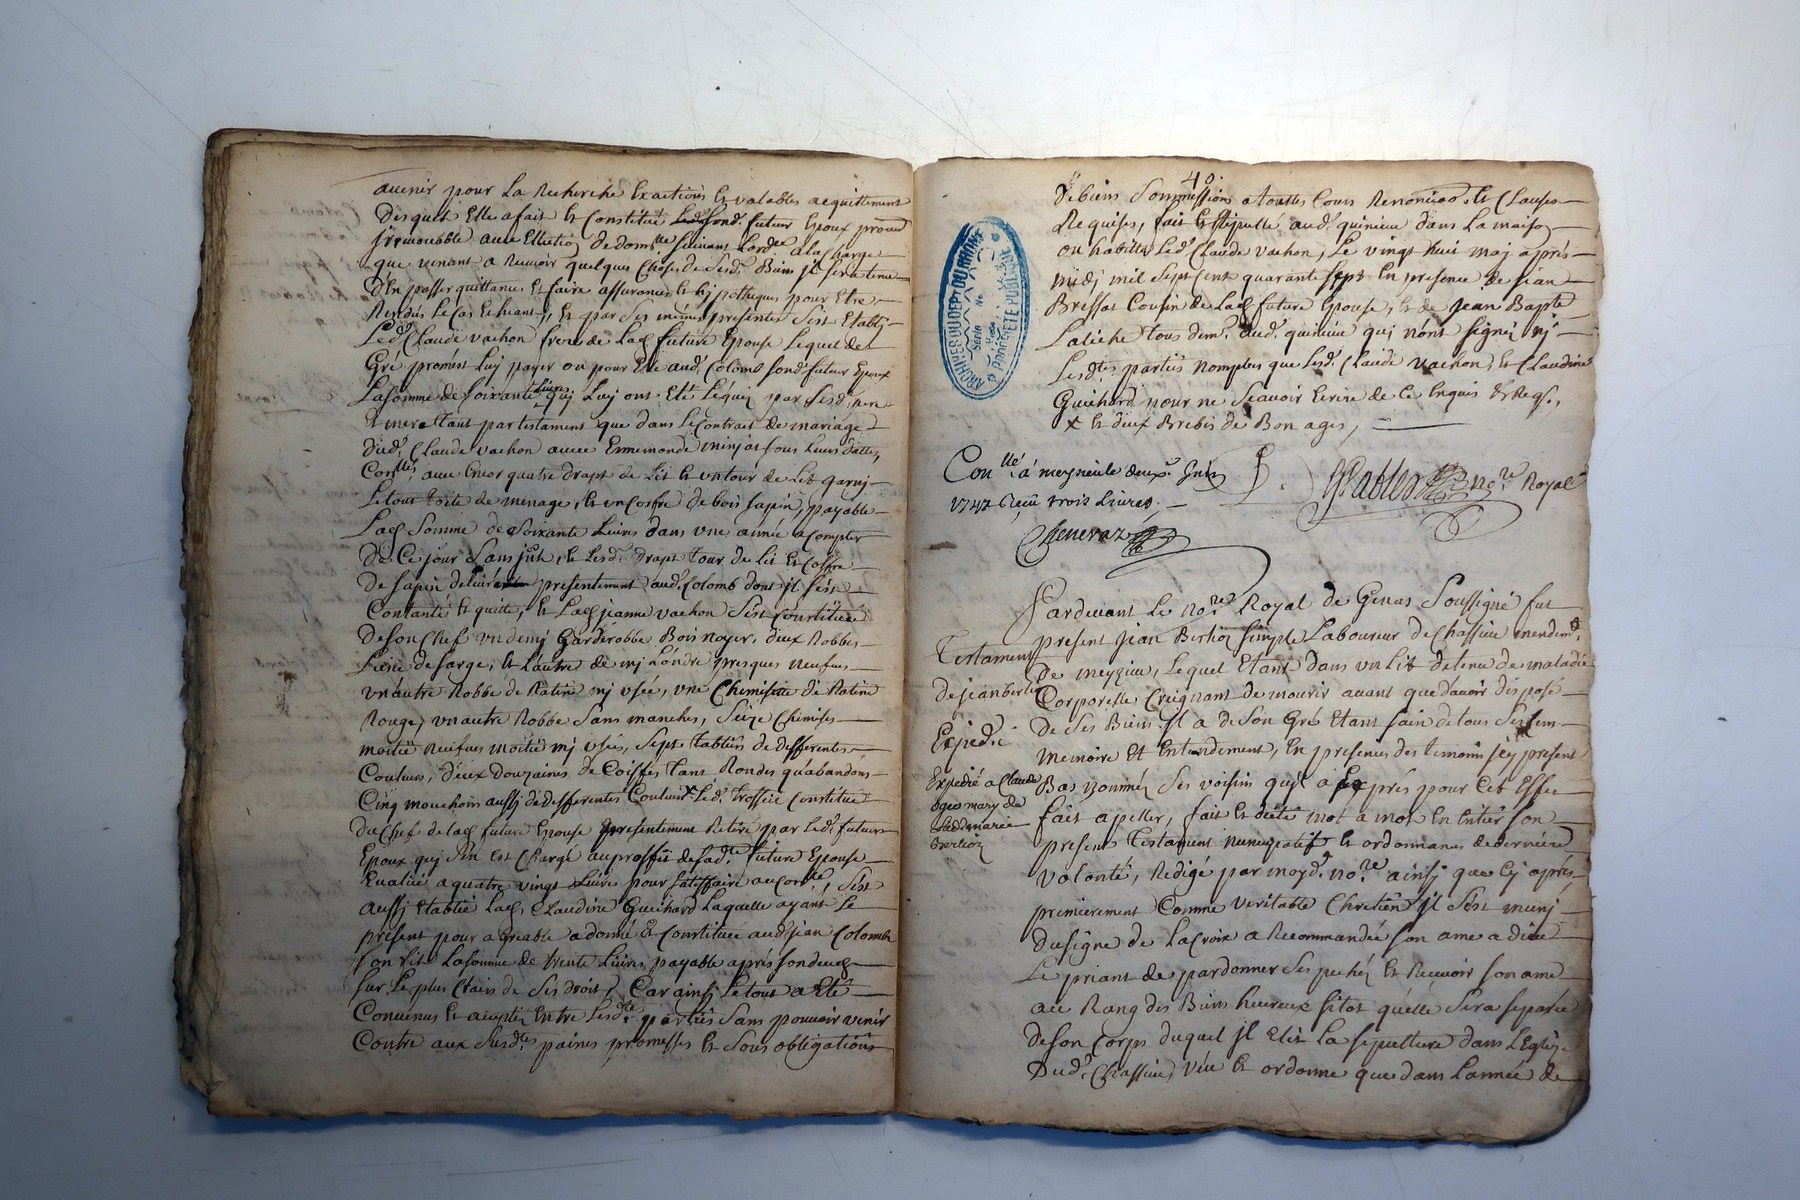 avenir pour la Recherche Exactions et valables acquittement
Desquels Elle a fait et Constitué Led. Sond. futur Epoux procur
jrrevocable avec Ellection de domlle suivant Lordre a la Charge
que venant a Recevoir quelques Choses de Sesd. Biens jl sera tenu
D'En passer quittances et faire assurances et hjpotheques pour Etre
Rendus Le Cas Echeant, Et par Ses mêmes presentes S'est Etablj
Led. Claude vachon frere de Lad. future Epouse Lequel de
Gré promest Luj payer ou pour Elle aud. Colomb Sond. futur Epoux
La Somme de Soixante Livres quj Luj ont Eté Légués par Sesd. pere
Et mere tant par testament que dans Le Contrat de mariage
Dud. Claude vachon avec Ennemonde minjat sous Leurs dattes,
Conllés, avec Encor quatre drapt de Lit et un tour de Lit garnj
Le tout toile de menage, et un Coffre de bois sapin, payable
Lad. Somme de Soixante Livres dans une année a Compter
De Ce jour Sans jnts, et Lesd. drapt tour de Lit et Coffre
De Sapin delivré presentement aud. Colomb dont jl s'est
Contanté et quitte, et Lad. jeanne vachon S'est Constituée
De Son Chef un demj Garderobbe Bois noyer, deux Robbes
L'une de sarge, et L'autre de mj Londre presques neufves
un autre Robbe de Ratine mj usée, une Chemisette de Ratine
Rouge, un autre Robbe Sans manches, Seize Chemises
moitié neufves moitié mj usées, Sept tabliers de differentes
Couleurs, deux Douzaines de Coiffes tant Rondes qu'abandons
Cinq mouchoirs aussj de differentes Couleurs x Led. trossEt Constitué
Du Chef de Lad. future Epouse presentement Retiré par Led. futur
Epoux quj s'En est Chargé au proffit de Sad.te future Epouse
Evalué a quatre vingt Livres pour Satisffaire au Conlle, S'est
aussj Etablie Lad. Claudine Guichard Laquelle ayant Le
present pour agreable a donné et Constituée aud. jean Colomb
Son fils La Somme de trente Livres payable après Son decez
Sur Le plus Clairs de Ses droits, Car ainsj Le tout a Eté
Convenus Et acceptés Entre Lesd.tes parties Sans pouvoir venir
Contre aux Susd.tes paines promesses et Sous obligations
40.
De biens Soummissions a touttes Cours Renonciaons et Clauses
Requises, fait et Stipullé aud. quinieu dans La maison
ou habitte Led. Claude vachon, Le vingt huit maj après
midj mil Sept Cent quarante Sept En presence de jean
Bressat Cousin de Lad. future Epouse, et de Jean Bapte
Latiche tous dem.t aud. quinieu quj n'ont Signé nj
Lesd.tes parties nomplus que Lesd. Claude vachon, et Claudine
Guichard pour ne Sçavoir Ecrire de Ce Enquis et Reqs.
x Et deux Brebis de Bon ages,
Conllé à meyzieu le deux.e Juin
1747 Reçu trois Livres.
Cheneraz
Nore Royal
Pardevant Le Nore Royal de Genas Soussigné fut
present jean Berlioz Simple Laboureur de Chassieu mendemt.
De meyzieu, Lequel Etant dans un Lit detenu de maladie
Corporelle Creignant de mourir avant que d'avoir disposé
De Ses Biens jl a de Son Gré Etant Sain de tous Ses Sens
Memoire Et Entendement, En presences des temoins jcy present
Bas nommés Ses voisins qu'jl a Exprès pour Cet Effet
fait apeller, fait et dicté mot à mot En Entier Son
present Testament nuncupatif et ordonnance de derniere
volonté, Redigé par moyd. Nore ainsj que Cj après,
premierement Comme veritable Chretien jl S'est munj
Du Signe de La Croix a Recommandée Son ame a dieu
Le priant de pardonner Ses pechés Et Recevoir Son ame
au Rang des Bien heureux Sitot qu'elle Sera Separée
De Son Corps duquel jl Elit La Sepulture dans L'Eglise
Dud. Chassieu, veut et ordonne que dans L'année de
Testament
De jean Berlioz
Expedié
Expedié a Claude
Berlioz
ARCHIVES DU DEPT DU RHONE
Série
No
PROPRIÉTÉ PUBLIQUE